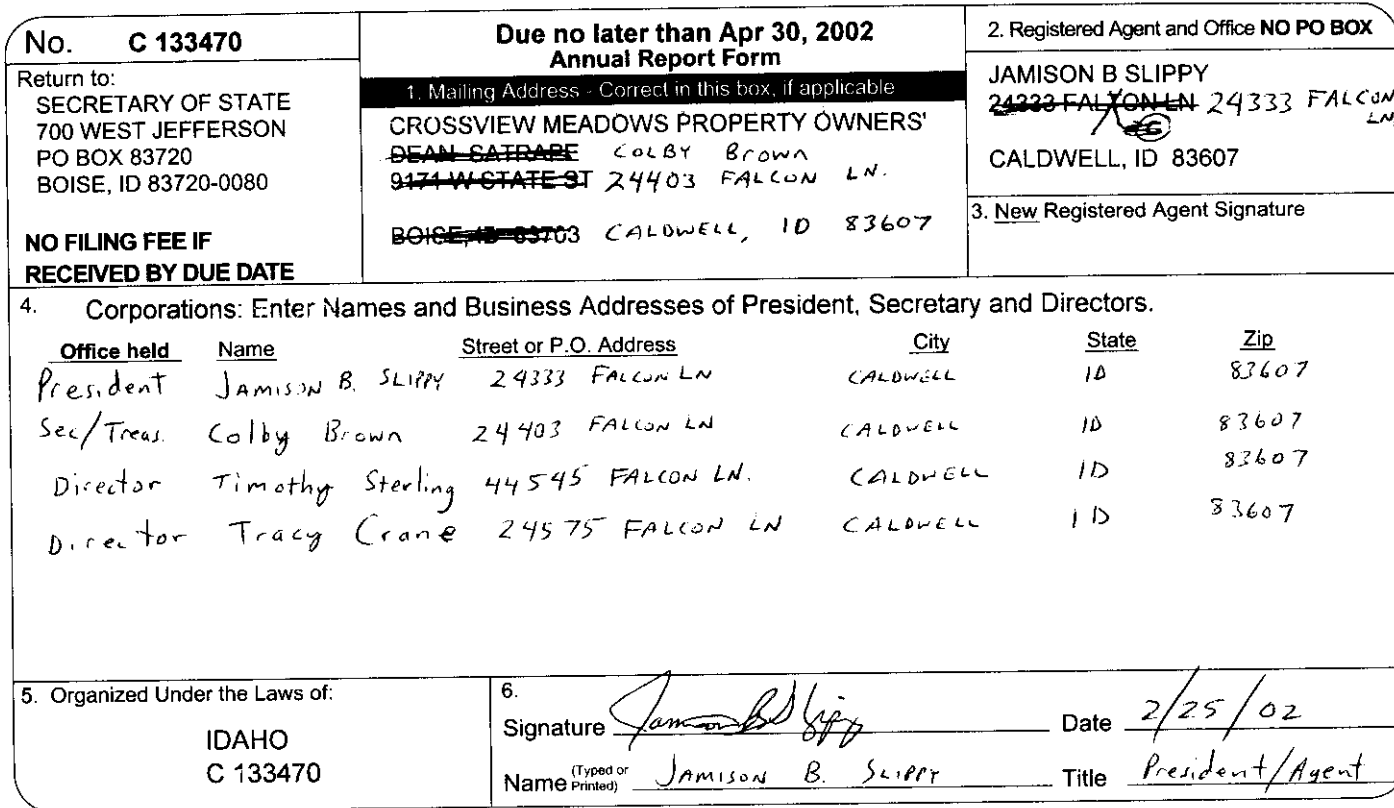 No. C 133470
Return to:
SECRETARY OF STATE
700 WEST JEFFERSON
PO BOX 83720
BOISE, ID 83720-0080
NO FILING FEE IF
RECEIVED BY DUE DATE
Due no later than Apr 30, 2002
Annual Report Form
1. Mailing Address - Correct in this box, if applicable
CROSSVIEW MEADOWS PROPERTY OWNERS'
DEAN SATRAPE COLBY Brown
9171 W STATE ST 24403 FALCON LN.
BOISE, ID 83703 CALDWELL, ID 83607
2. Registered Agent and Office NO PO BOX
JAMISON B SLIPPY
24333 FALXON LN 24333 FALCON LN
CALDWELL, ID 83607
3. New Registered Agent Signature
4. Corporations: Enter Names and Business Addresses of President, Secretary and Directors.
Office held Name Street or P.O. Address City State Zip
President JAMISON B. SLIPPY 24333 FALCON LN CALDWELL ID 83607
Sec/Treas. Colby Brown 24403 FALCON LN CALDWELL ID 83607
Director Timothy Sterling 44545 FALCON LN. CALDWELL ID 83607
Director Tracy Crane 24575 FALCON LN CALDWELL ID 83607
5. Organized Under the Laws of:
IDAHO
C 133470
6.
Signature Jamison B Slippy Date 2/25/02
Name (Typed or Printed) JAMISON B. SLIPPY Title President/Agent